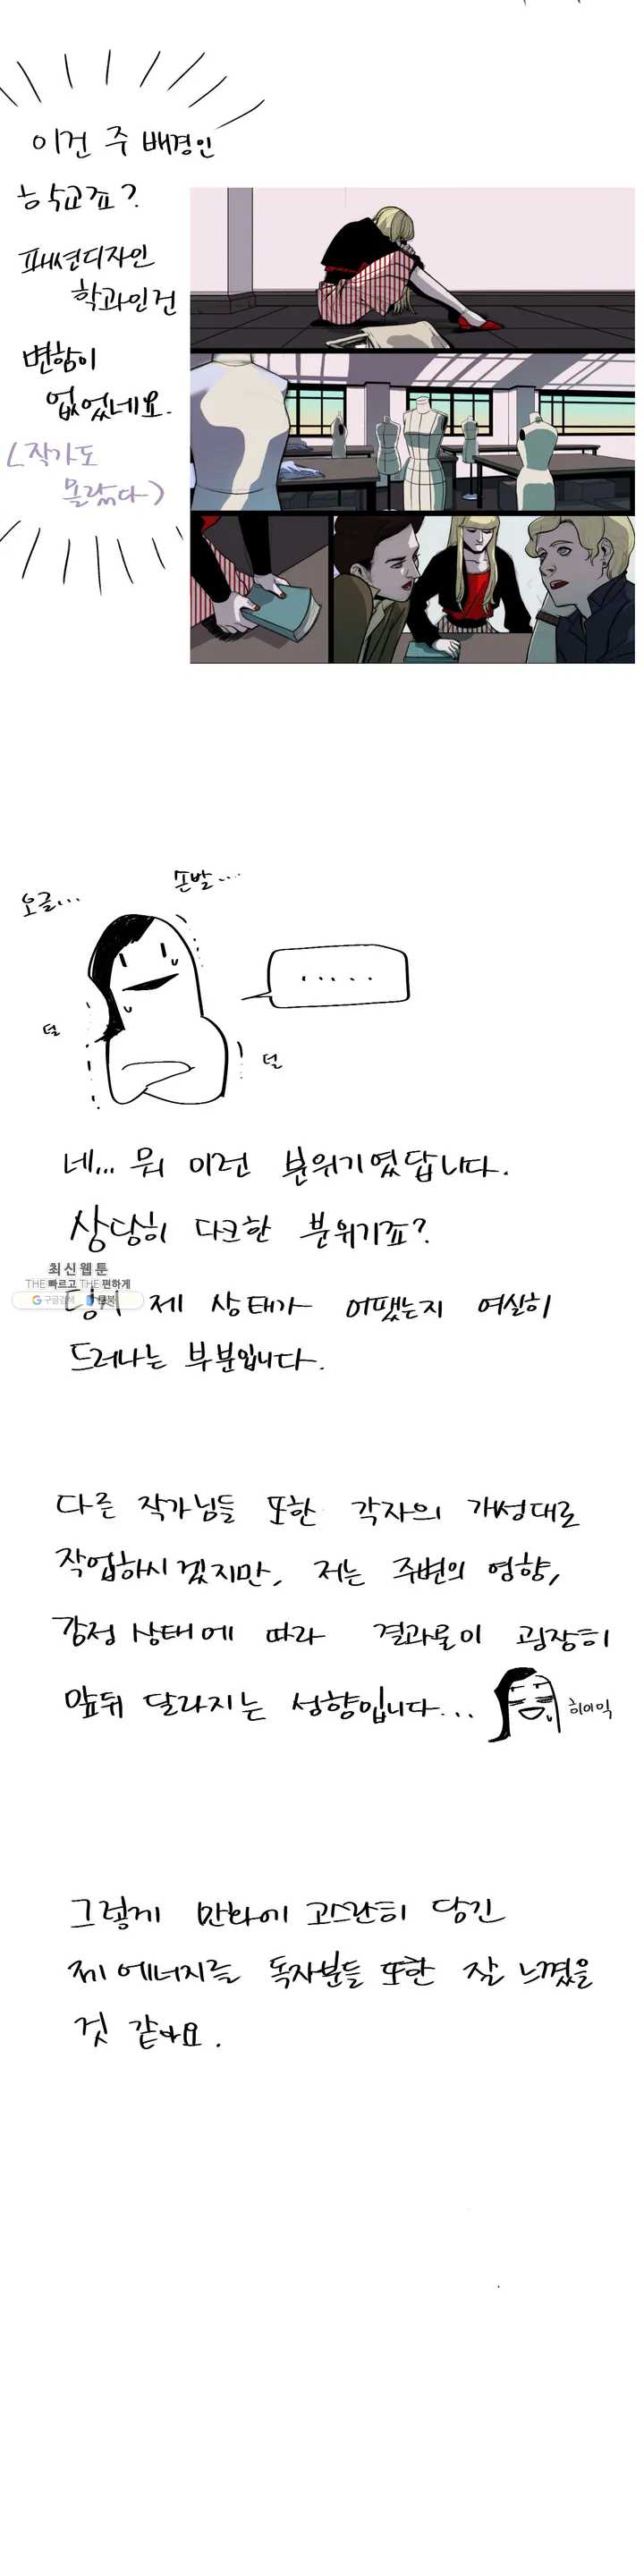 이건 주 배경인
학교죠?
패션디자인
학과인건
변함이
없었네요.
(작가도
몰랐다)
손발...
오글...
.....
덜
덜
네... 뭐 이런 분위기였답니다.
상당히 다크한 분위기죠?
최신웹툰
THE 빠르고 THE 편하게
구글검색
제 상태가 어땠는지 여실히
드러나는 부분입니다.
다른 작가님들 또한 각자의 개성대로
작업하시겠지만, 저는 주변의 영향,
감정 상태에 따라 결과물이 굉장히
앞뒤 달라지는 성향입니다...
히이익
그렇게 만화에 고스란히 담긴
제 에너지를 독자분들 또한 잘 느꼈을
것 같아요.